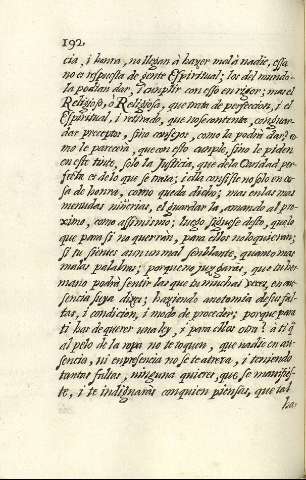 192.
cia, i honra, no llegan à hazer mal à nadie, essa
no es respuesta de gente Espiritual; los del mundo
la podian dar, i cumplir con esso en rigor; mas el
Religioso, ò Religiosa, que trata de perfeccion, i el
Espiritual, i retirado, que no se contenta, con guar
dar preceptos, sino consejos, como la podrà dar? co
mo le parecerà, que con esto cumple, sino le piden
en este tanto, solo la Justicia, que de la Caridad per
feta es de lo que se trata; i ella consiste no solo en co
sa de honra, como queda dicho; mas en las mas
menudas niñerias, el guardar la, amando al pro
ximo, como assi mismo; luego siguese desto, que lo
que para si no querrian, para ellos no lo quieran;
si tu sientes aun un mal semblante, quanto mas
malas palabras; porque no juzgaras, que tu her
mano podrà sentir las que tu muchas vezes, en au
sencia suya dizes; haziendo anotomia de sus fal
tas, i condicion, i modo de proceder; porque para
ti has de querer una ley, i para ellos otra? à ti q̃
al pelo de la ropa no te toquen, que nadie en au
sencia, ni en presencia no se te atreva, i teniendo
tantas faltas, ninguna quieres, que se manifies-
te, i te indignaràs con quien piensas, que tal
ha-